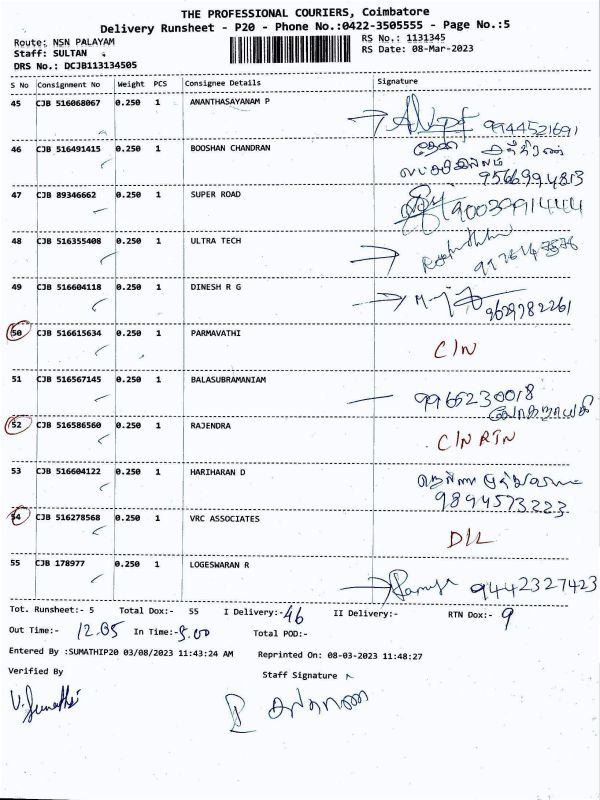 THE PROFESSIONAL COURIERS, Coimbatore
Delivery Runsheet - P20 - Phone No.:0422-3505555 - Page No.:5
Route: NSN PALAYAM RS No.: 1131345
Staff: SULTAN RS Date: 08-Mar-2023
DRS No.: DCJB113134505
S No Consignment No Weight PCS Consignee Details Signature
45 CJB 516068067 0.250 1 ANANTHASAYANAM P 9944521691
46 CJB 516491415 0.250 1 BOOSHAN CHANDRAN
9566994813
47 CJB 89346662 0.250 1 SUPER ROAD 9003991444
48 CJB 516355408 0.250 1 ULTRA TECH
49 CJB 516604118 0.250 1 DINESH R G 9629782261
50 CJB 516615634 0.250 1 PARMAVATHI C/N
51 CJB 516567145 0.250 1 BALASUBRAMANIAM 9966230018
52 CJB 516586560 0.250 1 RAJENDRA C/N RTN
53 CJB 516604122 0.250 1 HARIHARAN D
9894573223
54 CJB 516278568 0.250 1 VRC ASSOCIATES D/L
55 CJB 178977 0.250 1 LOGESWARAN R 9442327423
Tot. Runsheet:- 5 Total Dox:- 55 I Delivery:- 46 II Delivery:- RTN Dox:- 9
Out Time:- 12.05 In Time:- 5.00 Total POD:-
Entered By :SUMATHIP20 03/08/2023 11:43:24 AM Reprinted On: 08-03-2023 11:48:27
Verified By Staff Signature